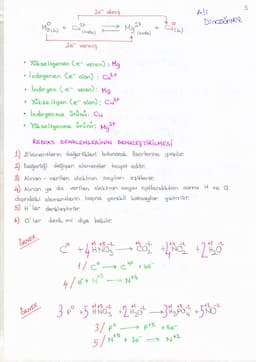 2e⁻ alış
Ali
DİNÇDÖNMEZ
5
Mg⁰(k) + Cu²⁺(suda) ⇌ Mg²⁺(suda) + Cu⁰(k)
2e⁻ veriş
• Yükseltgenen (e⁻ veren): Mg
• İndirgenen (e⁻ alan): Cu²⁺
• İndirgen (e⁻ veren): Mg
• Yükseltgen (e⁻ alan): Cu²⁺
• İndirgenme ürünü: Cu
• Yükseltgenme ürünü: Mg²⁺
REDOKS DENKLEMLERİNİN DENKLEŞTİRİLMESİ
1) Elementlerin değerlikleri bulunarak üzerlerine yazılır.
2) Değerliği değişen elementler tespit edilir.
3) Alınan - verilen elektron sayıları eşitlenir.
4) Alınan ya da verilen elektron sayısı eşitlendikten sonra H ve O
dışındaki elementlerin başına gerekli katsayılar getirilir.
5) H'ler denkleştirilir.
6) O'lar denk mi diye bakılır.
ÖRNEK
C⁰ + 4HNO₃ → CO₂ + 4NO₂ + 2H₂O
1/ C⁰ → C⁺⁴ + 4e⁻
4/ e⁻ + N⁺⁵ → N⁺⁴
ÖRNEK
3P⁰ + 5HNO₃ + 2H₂O → 3H₃PO₄ + 5NO
3/ P⁰ → P⁺⁵ + 5e⁻
5/ N⁺⁵ + 3e⁻ → N⁺²